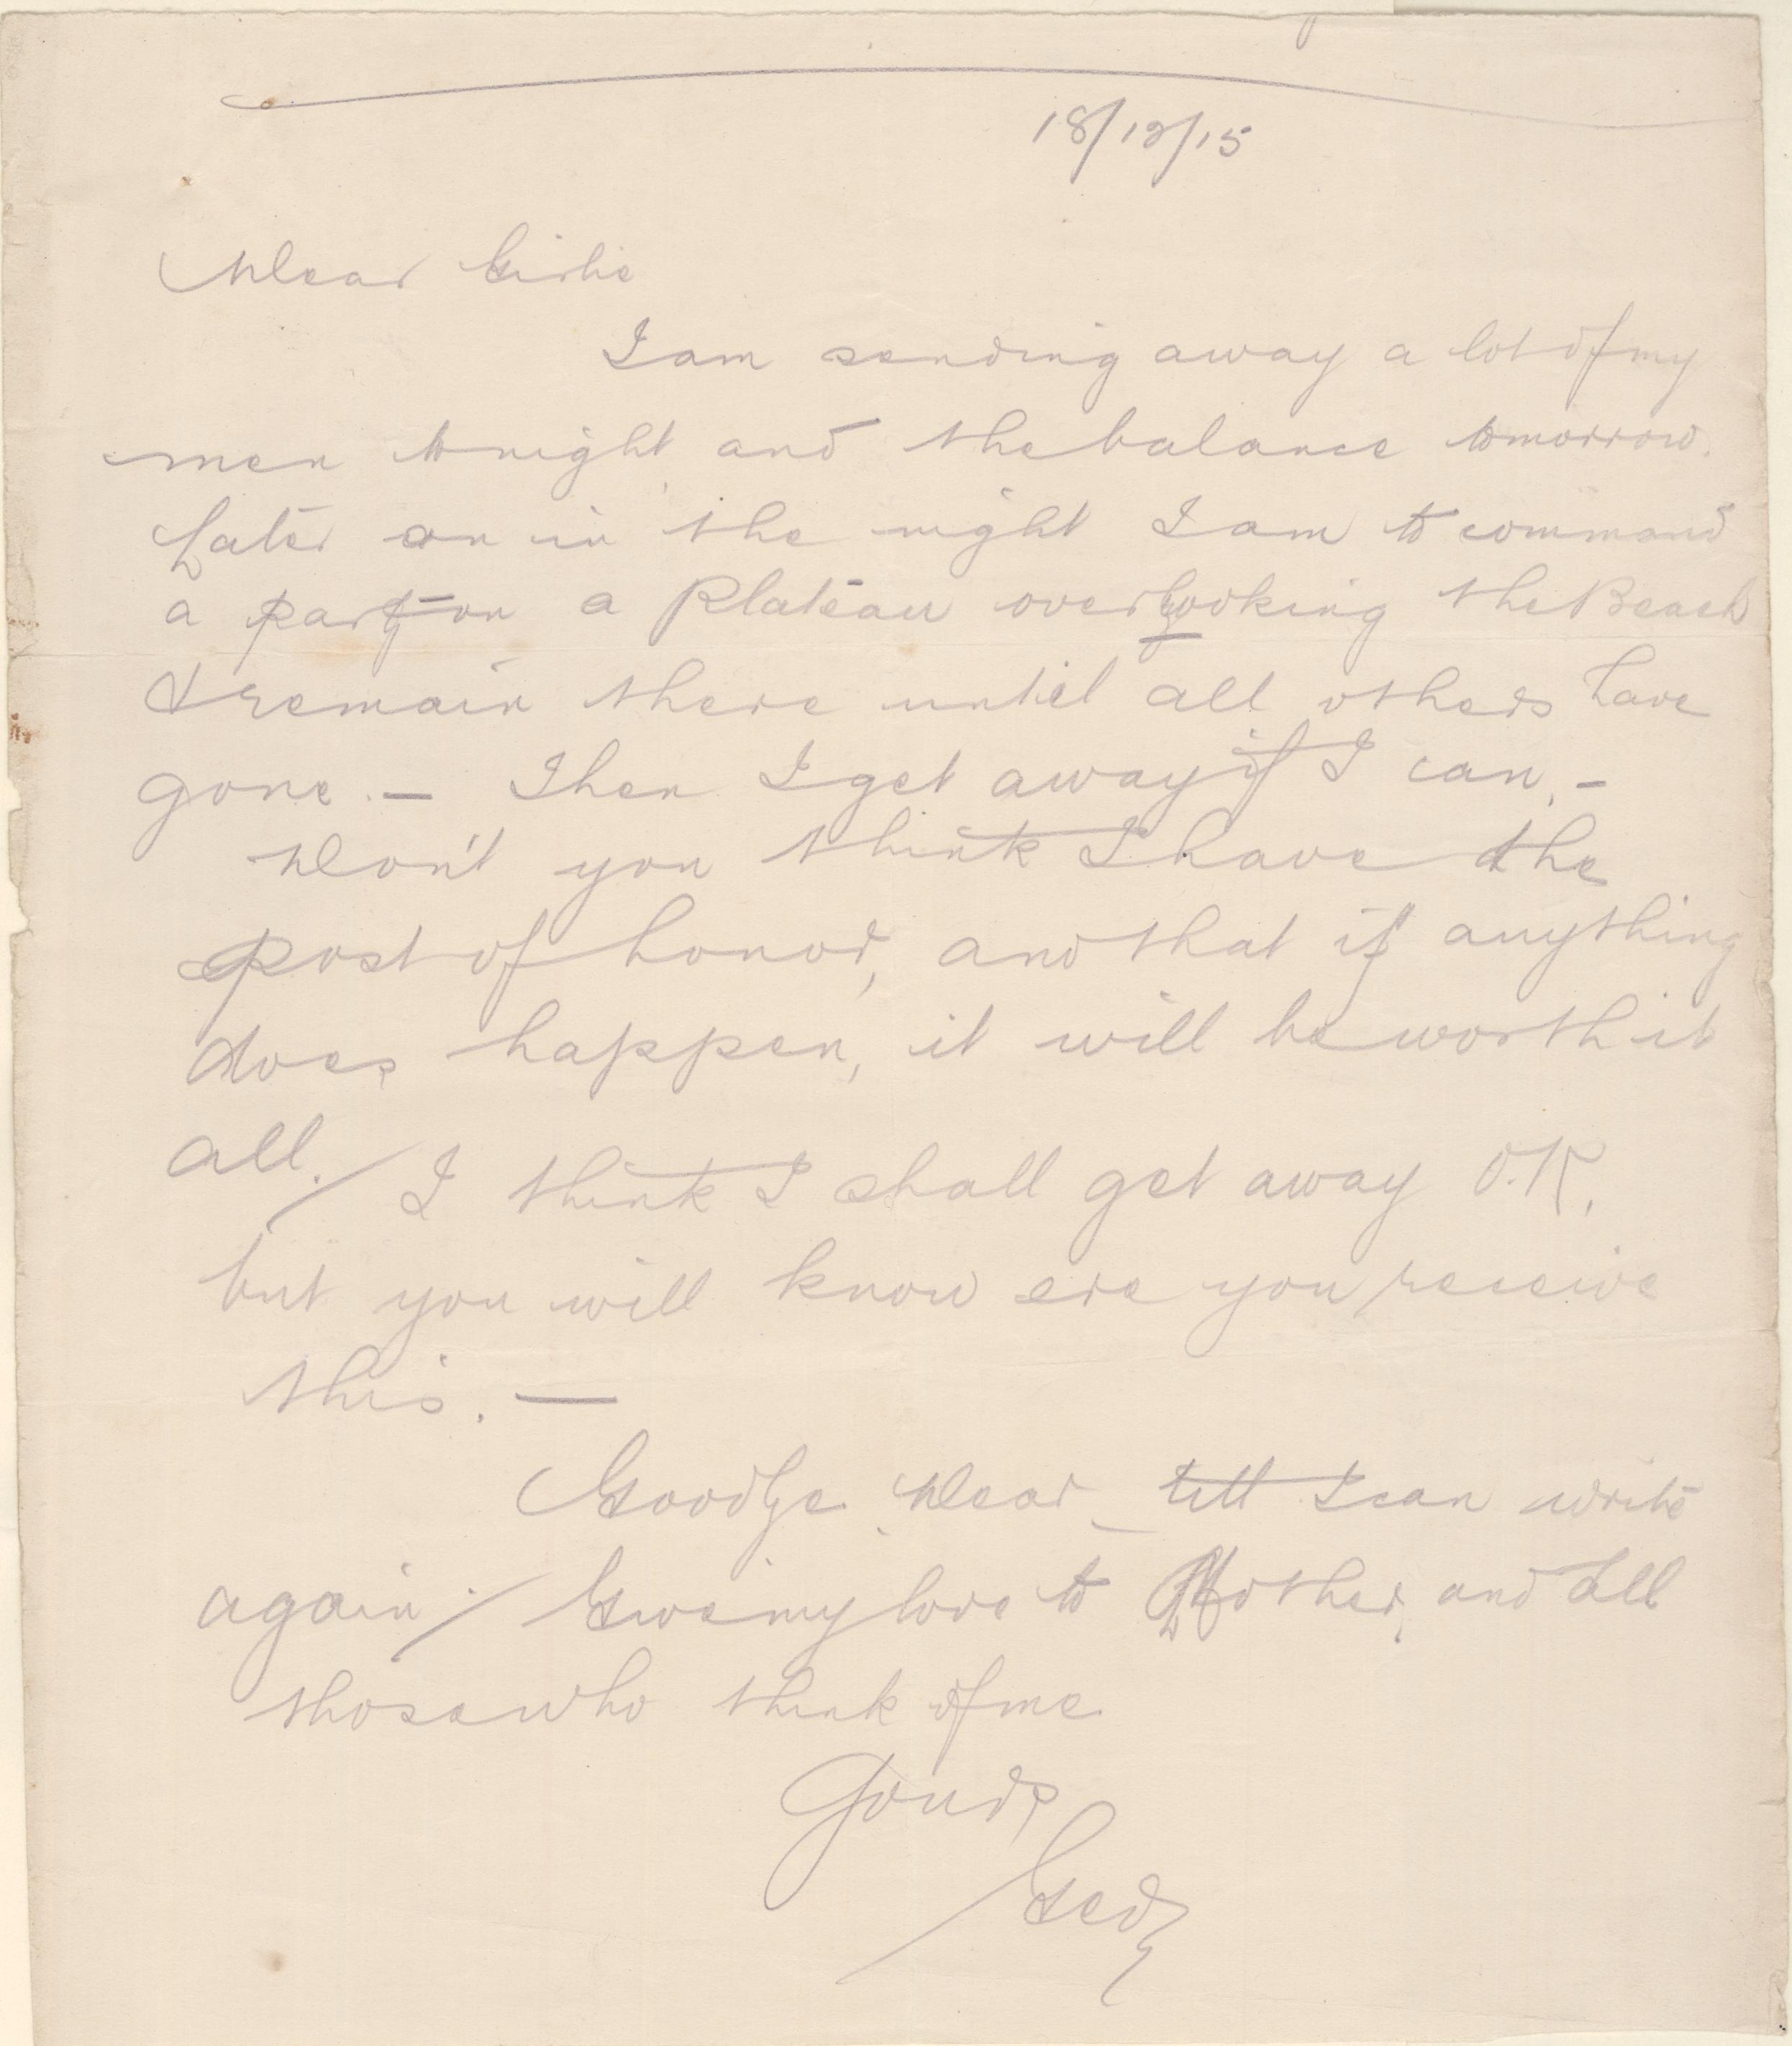 18/12/15
Dear Girlie
I am sending away a lot of my
men tonight, and the balance tomorrow.
Later on in the night I am to command
a party on a Plateau overlooking the Beach
& remain there until all others have
gone. — Then I get away if I can. —
Don't you think I have the
post of honor, and that if anything
does happen, it will be worth it
all. / I think I shall get away O.K.
but you will know ere you receive
this. —
Goodbye Dear till I can write
again / Give my love to Mother, and all
those who think of me
Yours